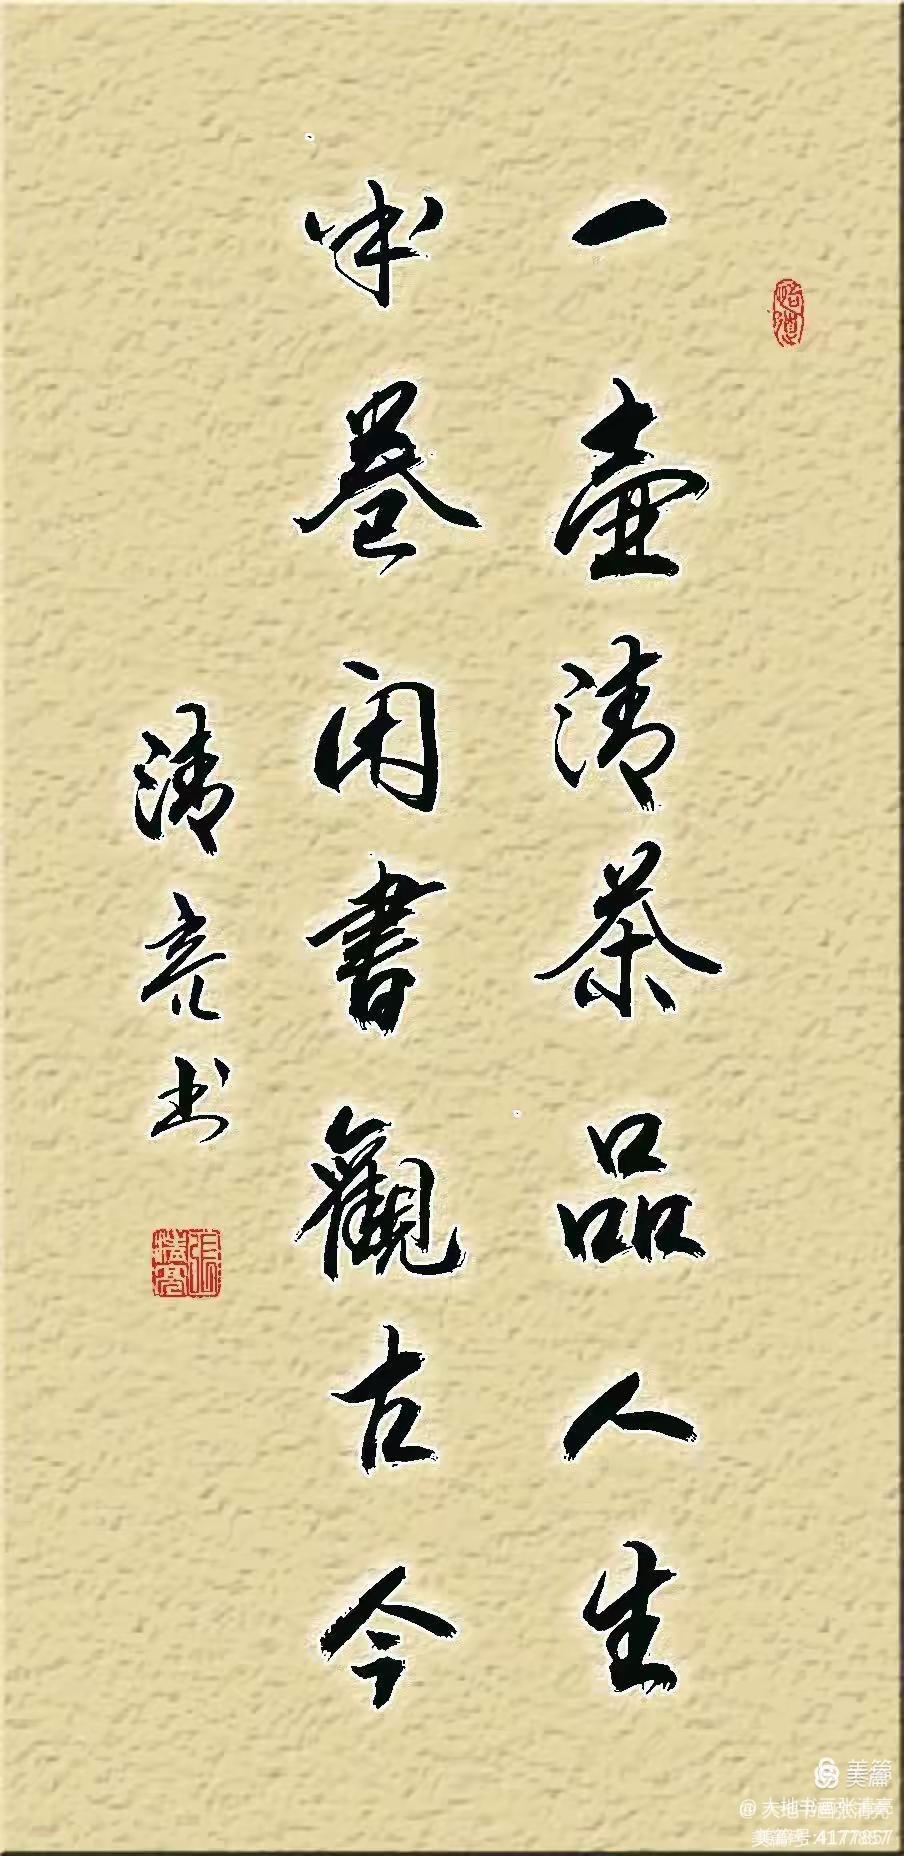 一壺清茶品人生
半卷闲書觀古今
清亮书
怡道
張清亮
美篇
@ 大地书画张清亮
美篇号:4177857